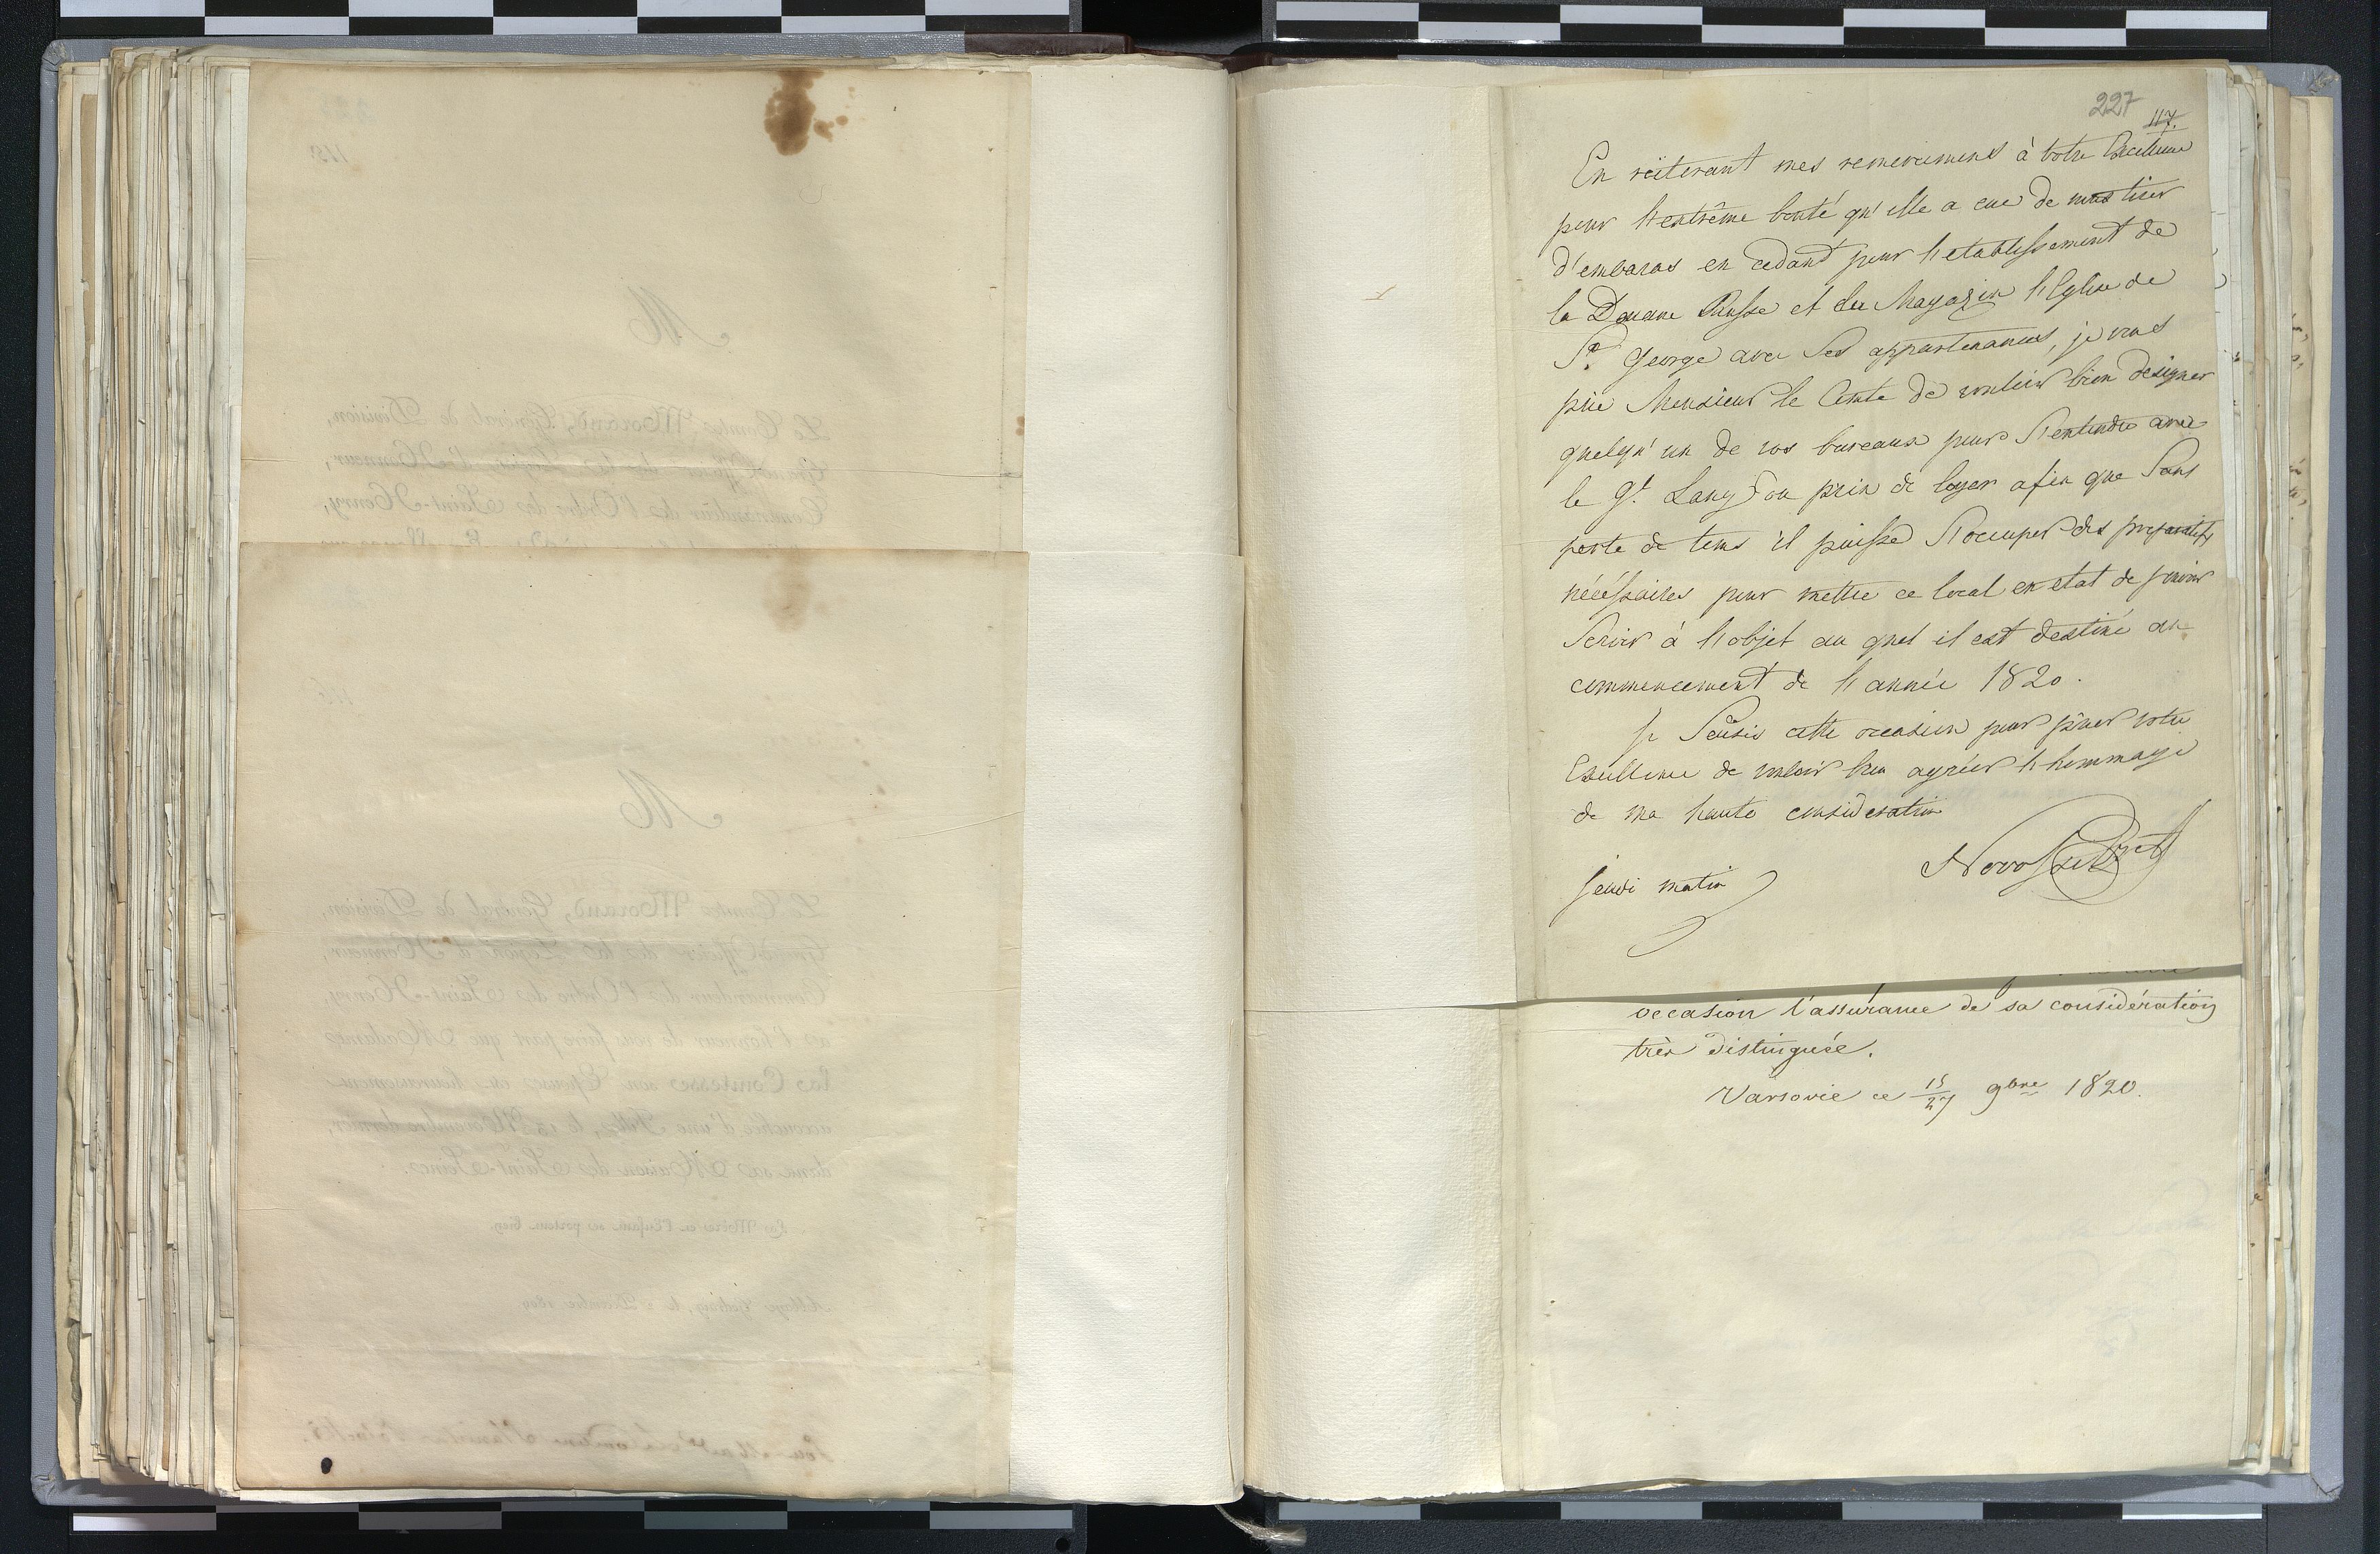 227
117.
En réiterant mes remerciemens à votre Excellence
pour l'extrême bonté qu'elle a eue de nous tirer
d'embaras en cedant pour l'etablissement de
la Douane Russe et du Magazin l'Eglise de
St. George avec Ses appartenances, je vous
prie Monsieur le Comte de vouloir bien designer
quelqu'un de vos bureaux pour S'entendre avec
le Gl. Lang d'ou prix de loyer afin que Sans
perte de tems il puisse S'occuper des preparatifs
nécéssaires pour mettre ce local en etat de pouvoir
Servir à l'objet au quel il est destiné au
commencement de l'année 1820.
Je Saisis cette occasion pour prier votre
Excellence de vouloir bien agréer l'hommage
de ma haute consideration
Novosiltzoff
jeudi matin
occasion l'assurance de sa considération
très distinguée.
Varsovie ce 15/27 9bre 1820.
M
Le Comte Morand, Général de Division,
Grand Officier de la Légion d'Honneur,
Commandeur de l'Ordre de Saint-Henry,
M
Le Comte Morand, Général de Division,
Grand Officier de la Légion d'Honneur,
Commandeur de l'Ordre de Saint-Henry,
a l'honneur de vous faire part que Madame
la Comtesse son Epouse est heureusement
accouchée d'une Fille, le 13 Novembre dernier,
dans sa Maison de Saint-
La Mère et l'Enfant se portent bien